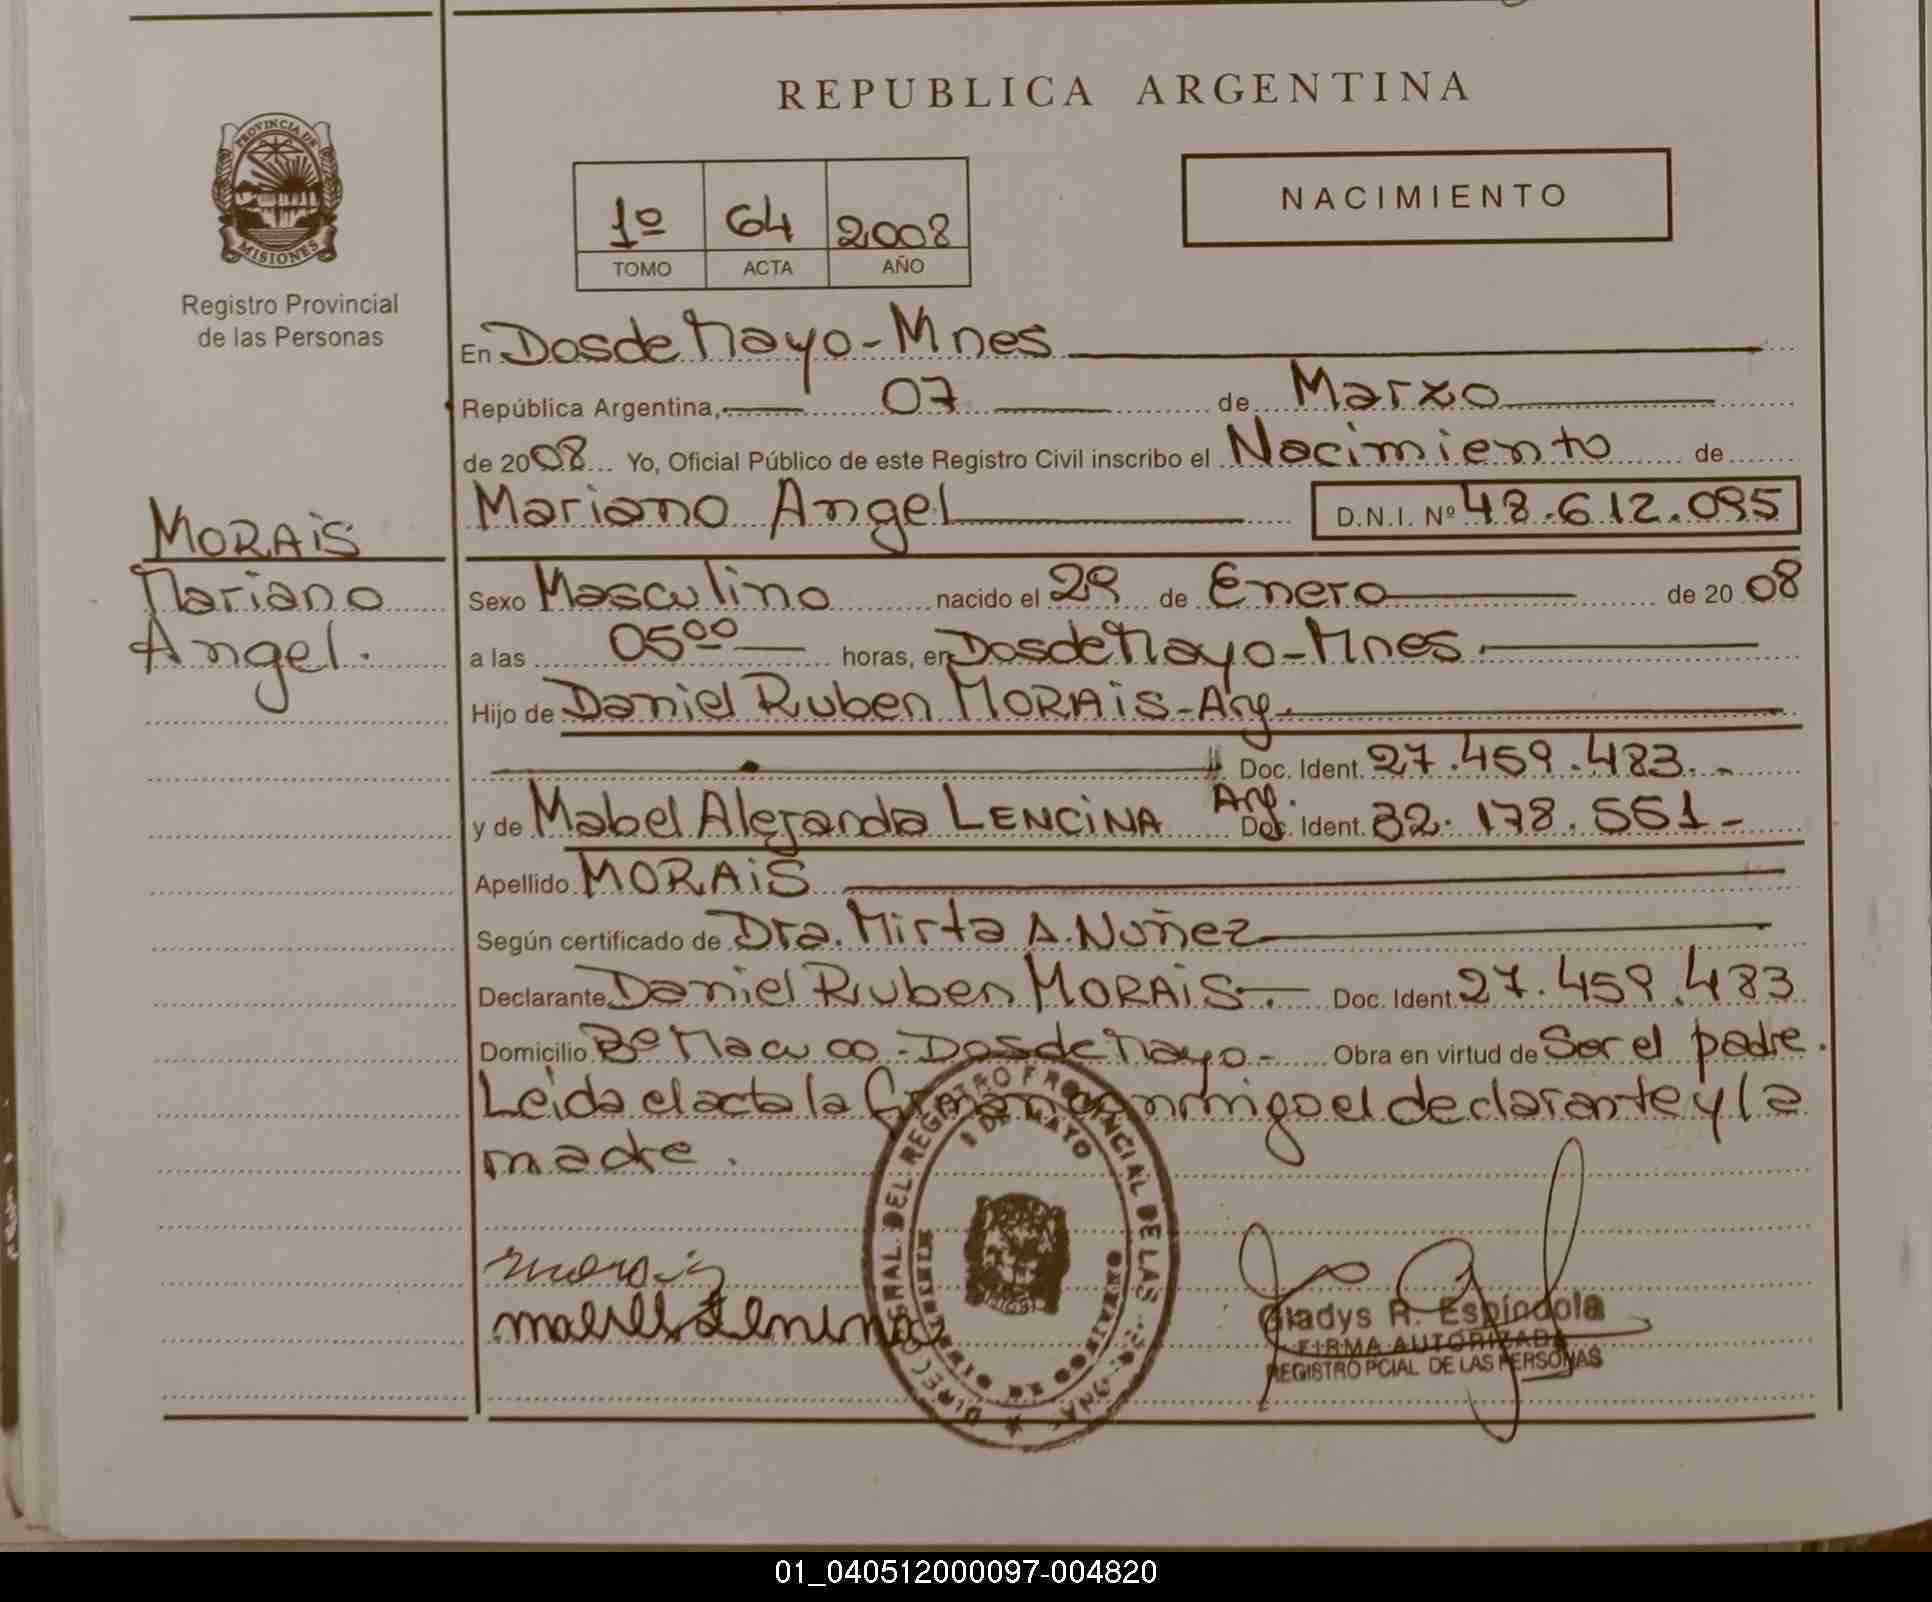 REPUBLICA ARGENTINA
PROVINCIA DE
MISIONES
Registro Provincial
de las Personas
NACIMIENTO
1º 64 2008
TOMO ACTA AÑO
En Dos de Mayo - Mnes
República Argentina, 07 de Marzo
de 2008 Yo, Oficial Público de este Registro Civil inscribo el Nacimiento de
Mariano Angel D.N.I. Nº 48.612.095
MORAiS
Mariano
Angel.
Sexo Masculino nacido el 29 de Enero de 2008
a las 05⁰⁰ horas, en Dos de Mayo - Mnes.
Hijo de Daniel Ruben MORAiS - Arg.
Doc. Ident. 27.459.483.-
y de Mabel Alejanda LENCiNA Arg. Doc. Ident. 32.178.551-
Apellido MORAiS
Según certificado de Dra. Mirta A. Nuñez
Declarante Daniel Ruben MORAiS-. Doc. Ident. 27.459.483
Domicilio Bº - Dos de Mayo - Obra en virtud de Ser el padre.
Leida el acta la Firman conmigo el declarante y la
madre.
DEL REGISTRO PROVINCIAL DE LAS
DE MAYO
Gladys R. Espíndola
FIRMA AUTORIZADA
REGISTRO PCIAL DE LAS PERSONAS
01_040512000097-004820